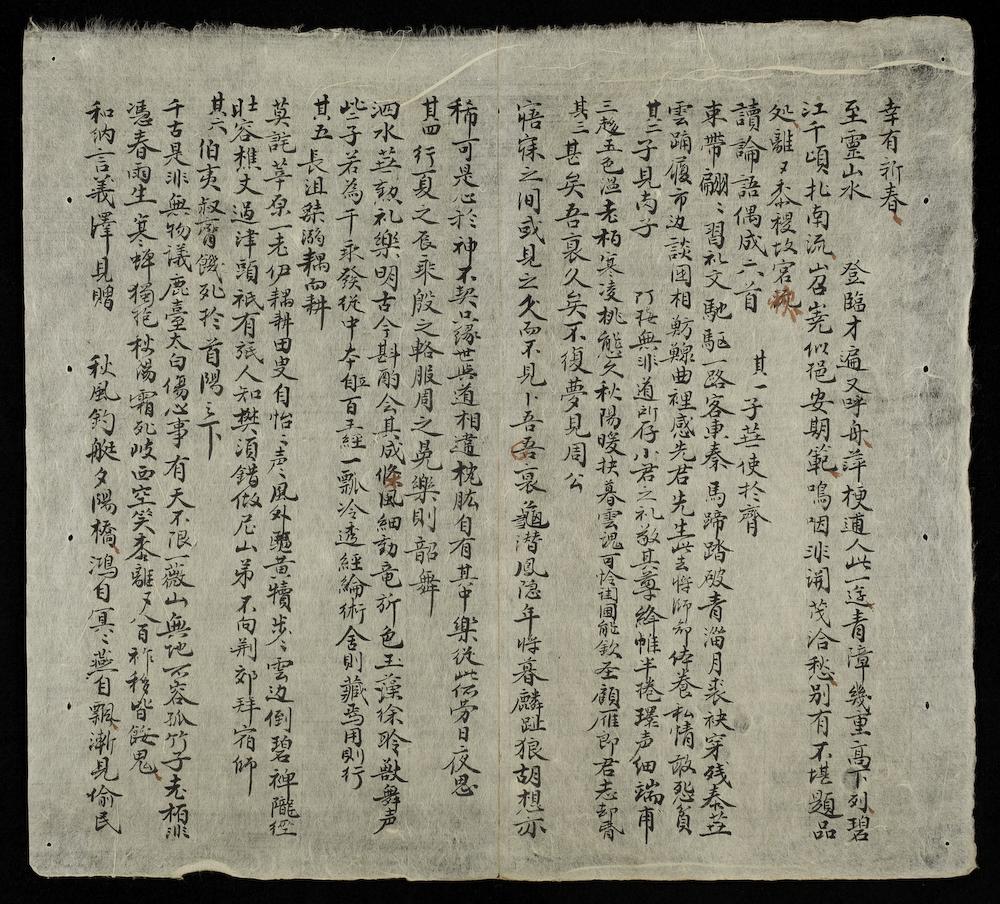 幸有新春
至靈山水　登臨才遍又呼舟萍梗逋人此一遊青障幾重高下列碧
江千頃北南流岩嶤似挹安期範鳴咽非開茂洽愁別有不堪題品
処離〻黍稷故宮秋
讀論語偶成六首　其一子華使於齊
束帶翩〻習礼文馳駆一路客東秦馬蹄踏破青淄月裘袂穿残泰岱
雲踊履市边談國相魴鰥曲裡感先君先生此去将師命侍養私情敢恝負
其二子見南子　阿極無非道所存小君之礼敬其尊絳帷半捲環声細端甫
三趍玉色温老柏寒凌桃態久秋陽暖扶暮雲
其三甚矣吾衰久矣不復夢見周公
寤寐之间或見之久而不見卜吾吾衰龜潜鳳隐年将暮麟趾狼胡想亦
稀可是心於神不契只緣世與道相違枕肱自有其中樂従此不労日夜思
其四　行夏之辰乘殷之輅服周之冕樂則韶舞
泗水英勃礼樂明古今斟酌会其成條風細動竜旂色玉藻徐聆獣舞声
些子若為千乘發従中本自百王經一瓢冷透經綸術舍則藏焉用則行
其五　長沮桀溺耦而耕
莫詫莘原一老伊耦耕田叟自怡〻声〻風外驅黃犢步〻雲边倒碧神隴經
壯容樵丈過津頭祇有孤人知樊須錯做尼山弟不向荆郊拜宿師
其六　伯夷叔齊餓死於首陽之下
千古是非無物議鹿臺太白傷心事有天不限一薇山無地可容孤竹子老柏非
憑春雨生寒蟬猶抱秋陽霜死岐西空笑黍離〻八百祚移皆餒鬼
和納言義澤見贈　秋風釣艇夕陽橋鴻自冥〻燕自飄漸見偷民